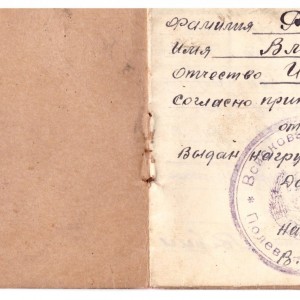 Фамилия
Имя Вл
отчество И
согласно при
от
Выдан нагру
До
на
В.
Войскова
Полев